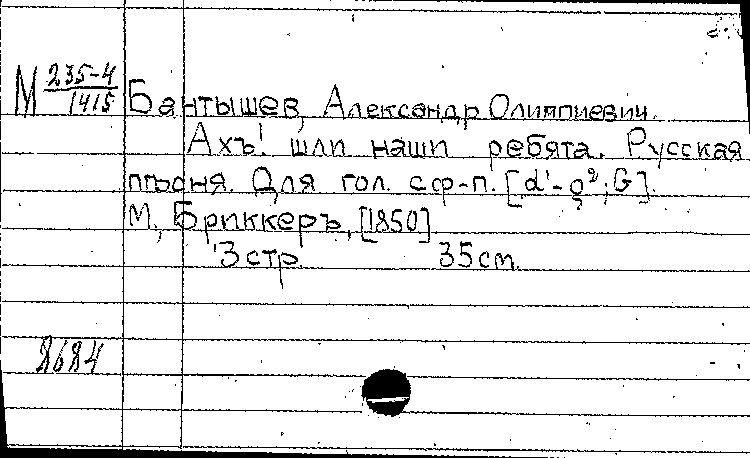 М 235-4/1415 Бантышев, Александр Олимпиевич.
Ахъ! шли наши ребята. Русская
пѣсня. Для гол. с ф-п. [d¹-g²; G].
М, Бриккеръ, [1850]
3 стр. 35 см.
8684